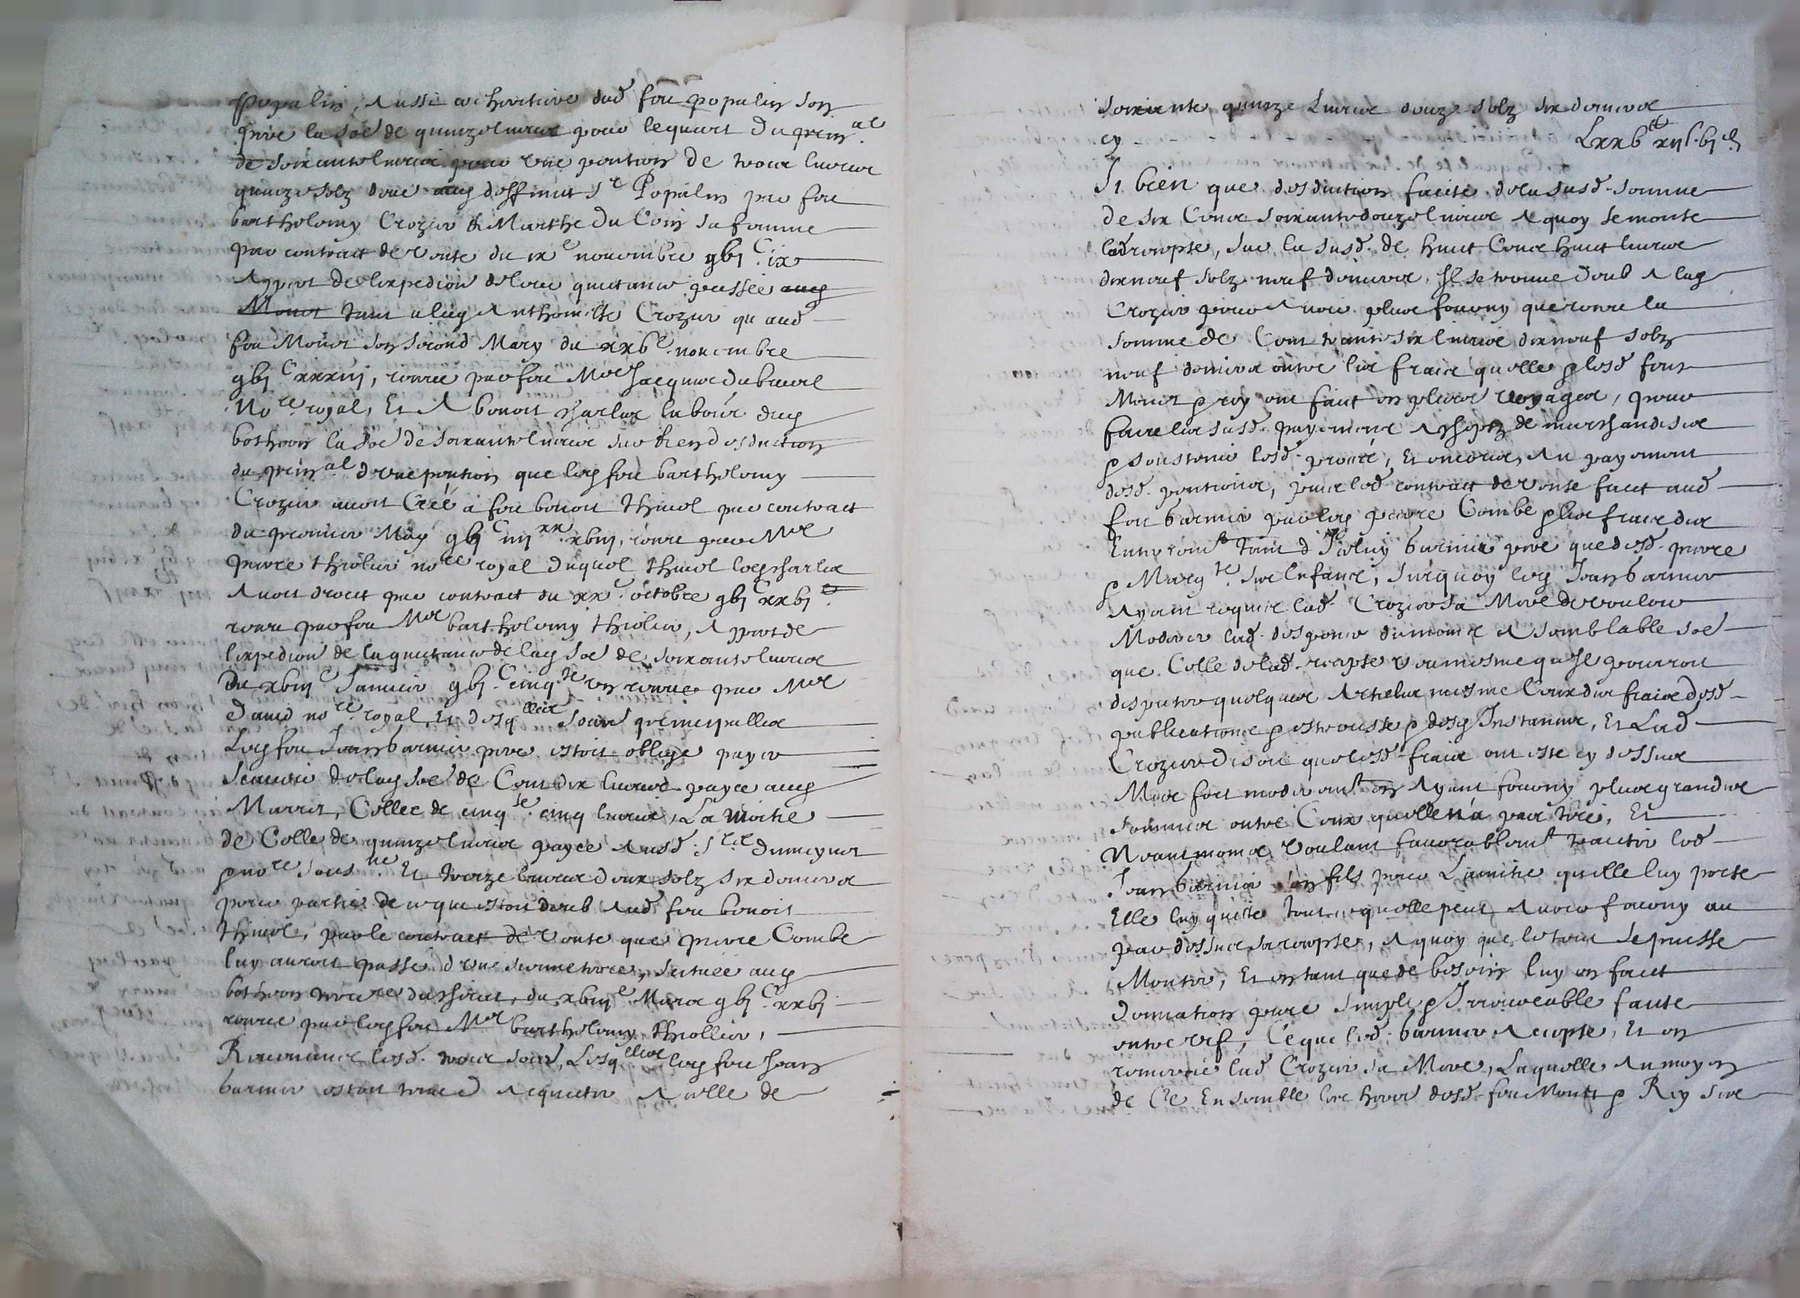 Popalin, Aussi co heritiere dud feu popalin son
pere la soe de quinze livres pour le quart du prin.al
de soixante livres pour une pention de trois livres
quinze solz deue aud deffunct Sr Popalin par feu
bartholomy Crozier & Marthe du Coin sa femme
par contract de vente du ixe novembre gbj C ix
Appert de lexpedion de leur quitance passée
tant a lad Anthoinette Crozier qu aud
feu Monet son second Mary du xxbe novembre
gbj C xxxiij, receue par feu Mre Jacques dubreul
No.re royal, Et A benoit
bothoon la soe de soixante livres sur & en desduction
du prin.al d'une pention que led feu bartholomy
Crozier avoit Créé a feu benoit thiuel par contract
du premier May gbj C iiij xx xbiij, receu par Mre
pierre thiolier no.re royal duquel thiuel led
Avoit droict par contract du xxe octobre gbj C xxbj
receu par feu Mre bartholomy thiolier, Appert de
lexpedion de la quitance de lad soe de soixante livres
Du xbiije Janvier gbj C cinq.te un receue par Mre
David no.re royal, Et desq.lles sommes principalles
Led feu Jean barnier pere estoit obligé payer
Scavoir de lad soe de Cent dix livres payée aud
Marret, Celle de cinq.te cinq livres, La moitié
de Celle de quinze livres payée Ausd Srs
Et treize livres deux solz six deniers
pour partie de ce que estoit deub Aud feu benoit
thiuel, par le contract de vente que pierre Combe
luy auroit passé d'une, scituée aud
bothoon, du xbiije Mars gbj C xxbj
receue par led feu Mre bartholomy thiollier,
Revenants lesd trois som, Lesq.lles led feu Jean
barnier estoit tenu dacquitter A celle de
soixante quinze livres douze solz six deniers
cy Lxxb lt xij s. bj d.
Si bien que desduction faicte de la susd. somme
de six Cens soixante douze livres A quoy se monte
lad recepte, sur la susd. de huict Cens huict livres
dix neuf solz neuf deniers, Il se treuve deub A lad
Crozier pour Avoir plus fourny que receu la
somme de Cent trante six livres dix neuf solz
neuf deniers outre les fraix qu elle & led feu
Monet & Rey ont faict en plusrs voyages, pour
faire les susd. payements Acheptz de marchandises
& soustenir lesd. proces, Et encores, Au payement
desd. pentions, pour led contract de vente faict aud
feu barnier par led pierre Combe & les fraix des
Enterrem.ts Tant d'Icelluy barnier pere que desd. pierre
& Marg.te ses enfans, Surquoy led Jean barnier
Ayant requis lad. Crozier sa Mere de vouloir
Moderer lad. despence du moins A semblable soe
que Celle de lad. recepte veu mesme qu Il pourroit
disputer quelques Articles mesme Ceux des fraix desd.
publications & estrousse & desd Instances, Et Lad
Crozier disoit que lesd. fraix ont esté cy dessus
Mis fort moderem.t en Ayant fourny plus grandes
sommes outre Ceux quelle n'a par tiré, Et
Neantmoings voulant favorablem.t traicter led
Jean barnier son fils pour L'amitié quelle luy porte
Elle luy quitte tout ce quelle peut Avoir fourny au
par dessus sa recepte, A quoy que le tout se puisse
Monter, Et en tant que de besoin luy en faict
donnation pure simple & Irrevocable faicte
entre vif, Ce que led. barnier Accepte, Et en
remercie lad Crozier sa Mere, Laquelle Au moyen
de Ce Ensemble les hoirs desd. feu Monet & Rey ses